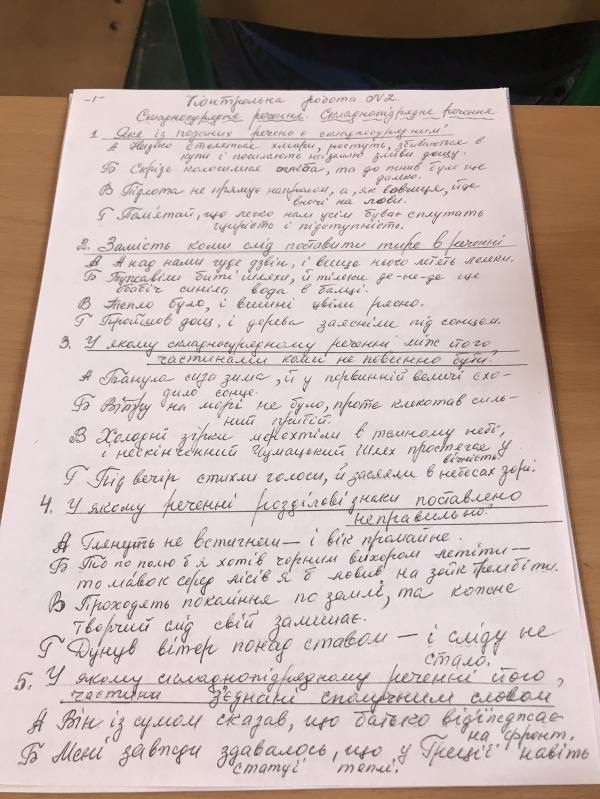 -1-
Контрольна робота №2.
Складносурядне речення. Складнопідрядне речення
1. Яке із поданих речень є складносурядним?
А Низько стелеться хмари, ростуть, збиваються в
купи і посилають на землю зливи дощу.
Б Скрізь колосилися хліба, та до жнив було ще
далеко.
В Підлота не прямує напролом, а, як вовчиця, йде
вночі на лови.
Г Пам'ятай, що легко нам усім буває сплутать
щирість і підступність.
2. Замість коми слід поставити тире в реченні
А А над нами гуде дзвін, і вище нього летять лелеки.
Б Тужавіли биті шляхи, й тільки де-не-де ще
обабіч синіла вода в балці.
В Тепло було, і вишні цвіли рясно.
Г Пройшов дощ, і дерева заясніли під сонцем.
3. У якому складносурядному реченні між його
частинами коми не повинно бути.
А Танула сиза зима, й у первинній величі схо-
дило сонце.
Б Вітру на морі не було, проте клекотав силь-
ний прибій.
В Холодні зірки мерехтіли в темному небі,
і нескінченний Чумацький Шлях простягає у
вічність.
Г Під вечір стихли голоси, й засяяли в небесах зорі.
4. У якому реченні розділові знаки поставлено
неправильно.
А Глянуть не встигнеш — і вік промайне.
Б То по полю б я хотів чорним вихором летіти —
то мавок серед лісів я б ловив на зойк трембіти.
В Проходять покоління по землі, та кожне
творчий слід свій залишає.
Г Дунув вітер понад ставом — і сліду не
стало.
5. У якому складнопідрядному реченні його,
частини з'єднані сполучним словом
А Він із сумом сказав, що батько від'їжджає
на фронт.
Б Мені завжди здавалось, що у Греції навіть
статуї теплі.